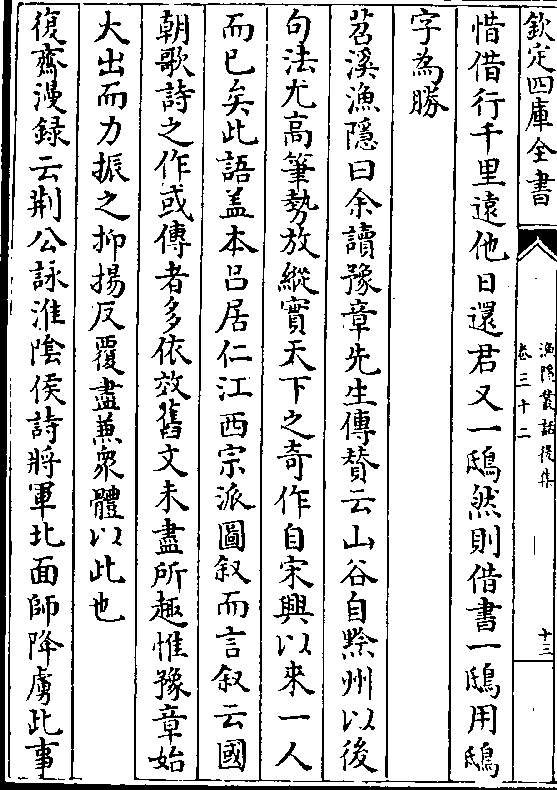 欽定四庫全書
漁隱叢話後集
卷三十二
十三
惜借行千里遠他日還君又一鴟然則借書一鴟用鴟
字為勝
苕溪漁隱曰余讀豫章先生傳贊云山谷自黔州以後
句法尤高筆勢放縱實天下之奇作自宋興以來一人
而已矣此語盖本吕居仁江西宗派圖叙而言叙云國
朝歌詩之作或傳者多依效舊文未盡所趣惟豫章始
大出而力振之抑揚反覆盡兼衆體以此也
復齋漫録云荆公詠淮隂侯詩將軍北面師降虜此事